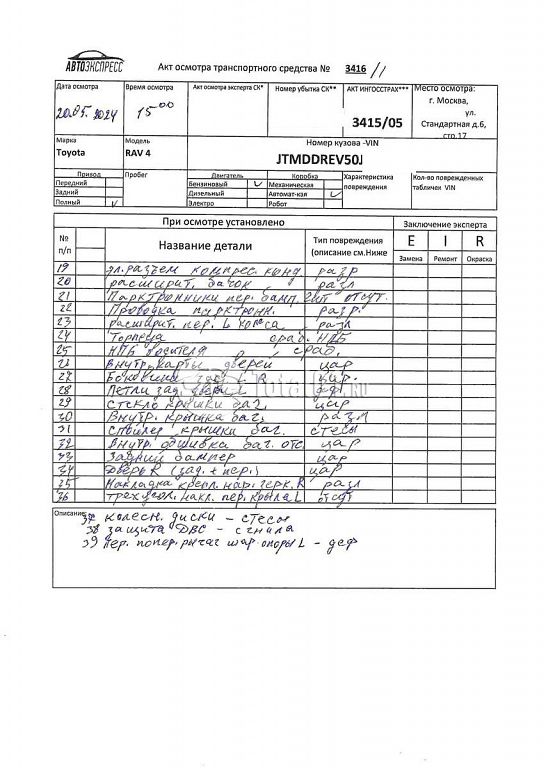 АВТОЭКСПРЕСС
Акт осмотра транспортного средства № 3416 //
Дата осмотра Время осмотра Акт осмотра эксперта СК* Номер убытка СК** АКТ ИНГОССТРАХ*** Место осмотра:
20.05.2024 15 00 3415/05 г. Москва,
ул.
Стандартная д.6,
стр.17
Марка Модель Номер кузова -VIN
Toyota RAV 4 JTMDDREV50J
Привод Пробег Двигатель Коробка Характеристика повреждения Кол-во поврежденных табличек VIN
Передний Бензиновый V Механическая
Задний Дизельный Автомат-кая V
Полный V Электро Робот
При осмотре установлено Заключение эксперта
№ п/п Название детали Тип повреждения (описание см.Ниже E I R
Замена Ремонт Окраска
19 эл. разъем компрес. конд разр
20 расширит. бачок разл
21 Парктронники пер. бамп. 2шт отсут.
22 Проводка парктронн. разр.
23 расширит. пер. L колеса разл
24 Торпеда сраб. НПБ
25 НПБ водителя сраб.
26 Внутр. карты дверей цар
27 Боковина зад. L R цар.
28 Петли зад. двери L деф
29 стекло крышки баг. цар
30 Внутр. крышка баг. разл
31 Спойлер крышки баг. стесы
32 Внутр. обшивка баг. отс. цар
33 Задний бампер цар
34 Дверь R (зад. + пер.) цар
35 Накладка крепл. нар. зерк. R разл
36 трехугол. накл. пер. крыла L отсут
Описание 37 колесн. диски – стесы
38 защита ДВС – сгнила
39 пер. попер. рычаг шар. опоры L – деф